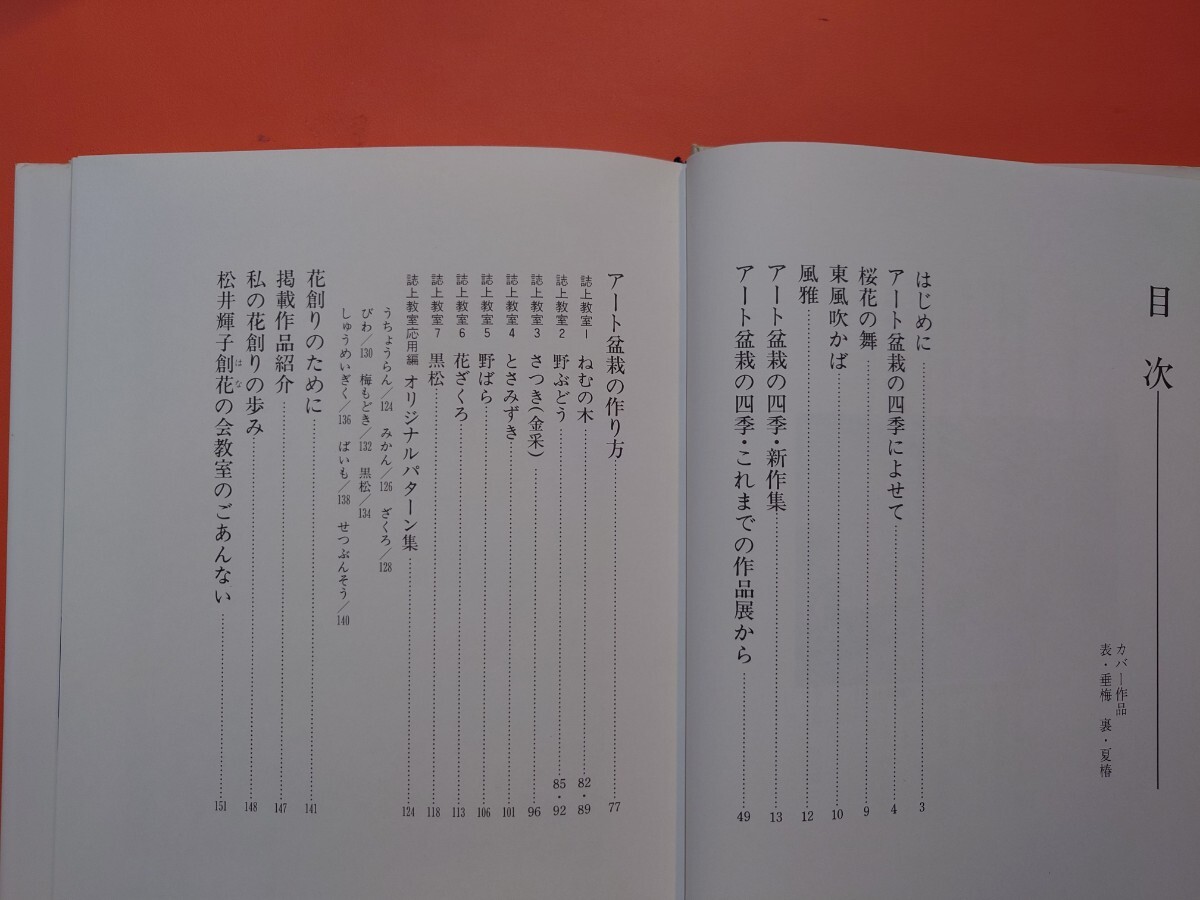 目次
カバー作品
表・垂梅 裏・夏椿
はじめに……3
アート盆栽の四季によせて……4
桜花の舞……9
東風吹かば……10
風雅……12
アート盆栽の四季・新作集……13
アート盆栽の四季・これまでの作品展から……49
アート盆栽の作り方……77
誌上教室1 ねむの木……82・89
誌上教室2 野ぶどう……85・92
誌上教室3 さつき(金采)……96
誌上教室4 とさみずき……101
誌上教室5 野ばら……106
誌上教室6 花ざくろ……113
誌上教室7 黒松……118
誌上教室応用編 オリジナルパターン集……124
うちょうらん/124 みかん/126 ざくろ/128
びわ/130 梅もどき/132 黒松/134
しゅうめいぎく/136 ばいも/138 せつぶんそう/140
花創りのために……141
掲載作品紹介……147
私の花創りの歩み……148
松井輝子創花(はな)の会教室のごあんない……151